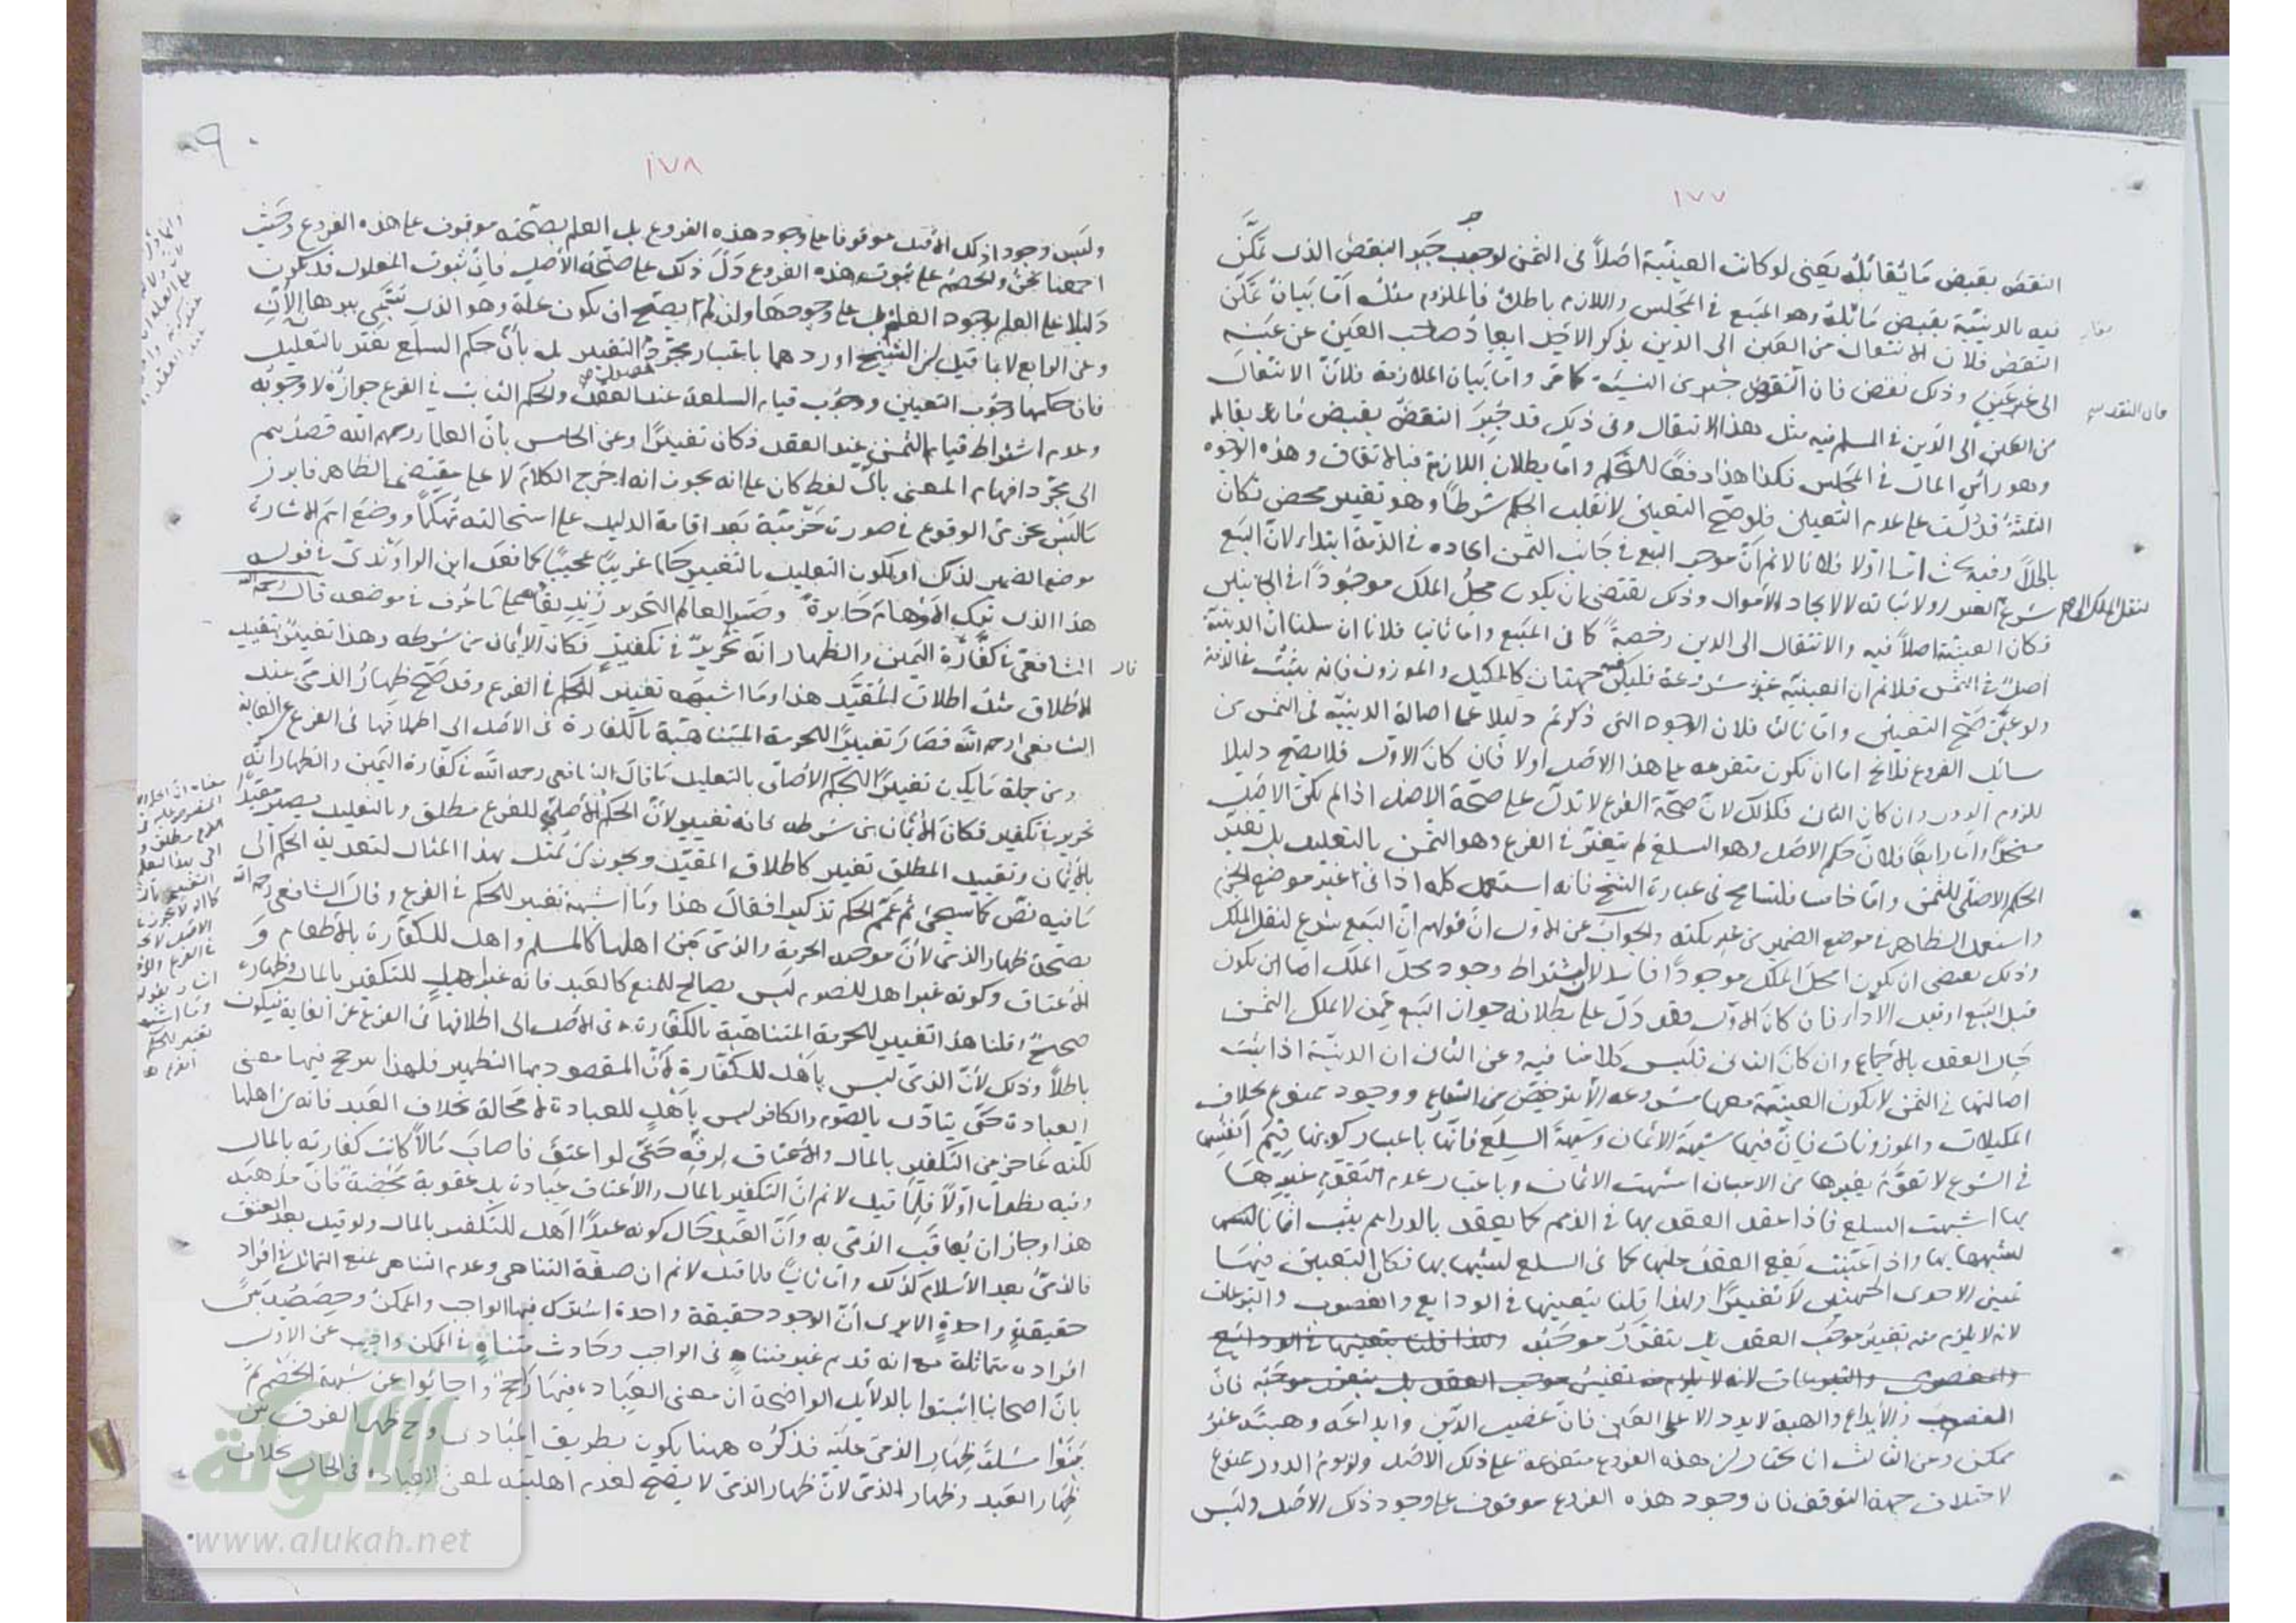 ١٧٧
النقض بقبض ما يقابله يعني لو كانت العينية اصلاً في الثمن لوجب جبر النقض الذي تمكن
فيه بالدينية بقبض ما يقابله وهو المبيع في المجلس واللازم باطل فالملزوم مثله اما بيان تمكن
النقض فلان الانتقال من العين الى الدين بذكر الاجل ابعاد صاحب العين عن عينه
الى غير عينه وذلك نقض فان النقد خير من النسيئة كما مر واما بيان الملازمة فلان الانتقال
فان النقد
من العين الى الدين في المسلم فيه مثل هذا الانتقال وفي ذلك قد جبر النقض بقبض ما يقابله
وهو رأس المال في المجلس فكذا هذا دفعًا للتحكم واما بطلان اللازم فبالاتفاق وهذه الوجوه
الثلثة قد دلت على عدم التعيين فلو صح التعيين لانقلب الحكم شرطًا وهو تغيير محض فكان
باطلاً وفيه بحث اما اولا فلانا لا نم ان موجب البيع في جانب الثمن ايجاده في الذمة ابتداء لان البيع
شرع لنقل الملك ولاثباته لا لايجاد الاموال وذلك يقتضي ان يكون محل الملك موجودًا في الجانبين
فكان العينية اصلاً فيه والانتقال الى الدين رخصة كما في المبيع واما ثانيا فلانا ان سلمنا ان الدينية
اصل في الثمن فلا نم ان العينية غير مشروعة فليكن فيه جهتان كالمكيل والموزون فانه يثبت في الذمة
ولو عين صح التعيين واما ثالثا فلان الوجوه التي ذكرتم دليلا على اصالة الدينية في الثمن من
مسائل الفروع فلا يخ اما ان تكون متفرعة على هذا الاصل اولا فان كان الاول فلا يصح دليلا
للزوم الدور وان كان الثاني فكذلك لان صحة الفرع لا تدل على صحة الاصل اذا لم يكن الاصل
واما رابعًا فلان حكم الاصل وهو السلع لم يتغير في الفرع وهو الثمن بالتعليل بل تغير
الحكم الاصلي للثمن واما خامسا فلتسامح في عبارة الشيخ فانه استعمل كلمة اذا في غير موضع الجزم
واستعمل الظاهر في موضع الضمير من غير نكتة والجواب عن الاول ان قولهم ان البيع شرع لنقل الملك
وذلك يقتضي ان يكون محل الملك موجودًا فاسد لان اشتراط وجود محل الملك اما ان يكون
قبل البيع او قبل الاداء فان كان الاول فقد دل على بطلانه جواز البيع ممن لا يملك الثمن
حال العقد بالاجماع وان كان الثاني فليس كلامنا فيه وعن الثاني ان الدينية اذا ثبت
اصالتها في الثمن لا تكون العينية معها مشروعة الا بترخيص من الشارع ووجوده ممنوع بخلاف
المكيلات والموزونات فان فيها شبهة الاثمان وشبهة السلع فانها باعتبار كونها قيم انفسها
في الشرع لا تقوم بغيرها من الاعيان اشبهت الاثمان وباعتبار عدم التقوم غيرها
بها اشبهت السلع فاذا عقد العقد بها في الذمم كما يعقد بالدراهم يثبت اثمانا
لشبهها بها واذا عينت يقع العقد عليها كما في السلع لشبهها بها فكان التعيين فيها
تعيين لاحدى الجهتين لا تغييرًا ولهذا قلنا بتعينها في الودايع والغصوب والتبرعات
لانه لا يلزم منه تغيير موجب العقد بل يتقرر موجبه
الغصب والايداع والهبة لا يرد الا على العين فان غصب الدين وايداعه وهبته غير
ممكن وعن الثالث ان نختار ان هذه الفروع متفرعة على ذلك الاصل ولزوم الدور ممنوع
لاختلاف جهة التوقف فان وجود هذه الفروع موقوف على وجود ذلك الاصل وليس
١٧٨
٩٠
وليس وجود ذلك الاصل موقوفا على وجود هذه الفروع بل العلم بصحته موقوف على هذه الفروع وحيث
اجمعنا نحن والخصم على ثبوت هذه الفروع دل ذلك على صحة الاصل فان ثبوت المعلول قد يكون
دليلا على العلم بوجود العلة بل على وجودها وان لم يصح ان يكون علة وهو الذي يسمى برهان الإن
وعن الرابع لا بما قيل ان الشيخ اوردهما باعتبار مجرد التغيير بل بأن حكم السلع تغير بالتعليل
فان حكمها وجوب التعيين ووجوب قيام السلعة عند العقد والحكم الثابت في الفرع جوازه لا وجوبه
وعدم اشتراط قيام الثمن عند العقد فكان تغييرًا وعن الخامس بان العلماء رحمهم الله قصدهم
الى مجرد افهام المعنى باي لفظ كان على انه يجوز انه اخرج الكلام لا على مقتضى الظاهر فابرز
ما ليس بمجزوم الوقوع في صورة جزمية بعد اقامة الدليل على استحالته تهكمًا ووضع اسم الاشارة
موضع الضمير لذلك او لكون التعليل بالتغيير حكما غريبًا عجيبًا كما فعل ابن الراوندي في قوله
هذا الذي ترك الاوهام حايرة وصير العالم النحرير زنديقا على ما عرف في موضعه قال رحمه الله
الشافعي في كفارة اليمين والظهار انه تحرير في تكفير فكان الايمان من شرطه وهذا تغيير بتقييد
قال
الاطلاق مثل اطلاق المقيد هذا وما اشبهه تغيير للحكم في الفرع وقد صح ظهار الذمي عند
الشافعي رحمه الله فصار تغييرًا للحرمة المتناهية بالكفارة في الاصل الى اطلاقها في الفرع عن الغاية
ومن جملة ما يكون تغييرًا للحكم الاصلي بالتعليل ما قال الشافعي رحمه الله في كفارة اليمين والظهار انه
تحرير في تكفير فكان الايمان من شرطه فانه تغيير لان الحكم الاصلي للفرع مطلق وبالتعليل يصير مقيدًا
بالايمان وتقييد المطلق تغيير كاطلاق المقيد ويجوز ان يمثل بهذا المثال لتعدية الحكم الى
ما فيه نص كما سيجئ ثم عمم الحكم تذكيرا فقال هذا وما اشبهه تغيير للحكم في الفرع وقال الشافعي رحمه الله
بصحة ظهار الذمي لان موجبه الحرمة والذمي من اهلها كالمسلم واهل للكفارة بالاطعام و
الاعتاق وكونه غير اهل للصوم ليس بصالح للمنع كالعبد فانه غير اهل للتكفير بالمال وظهاره
صحيح وقلنا هذا تغيير للحرمة المتناهية بالكفارة في الاصل الى اطلاقها في الفرع عن الغاية فيكون
باطلاً وذلك لأن الذمي ليس باهل للكفارة لان المقصود بها التطهير فلهذا ترجح فيها معنى
العبادة حتى يتأدى بالصوم والكافر ليس باهل للعبادة لا محالة بخلاف العبد فانه من اهلها
لكنه عاجز عن التكفير بالمال والاعتاق لرقه حتى لو اعتق فاصاب مالاً كانت كفارته بالمال
وفيه نظر اما اولا فلما قيل لا نم ان التكفير بالمال والاعتاق عبادة بل عقوبة محضة فان مذهبه
هذا وجاز ان يعاقب الذمي به وأن العبد حال كونه عبدًا اهل للتكفير بالمال ولو قيل بعد العتق
فالذمي بعد الاسلام كذلك واما ثانيا فلما قيل لا نم ان صفة التناهي وعدم التناهي تمنع التماثل في افراد
حقيقة واحدة الا يرى أن الوجود حقيقة واحدة اشترك فيها الواجب والممكن
افراده متماثلة مع انه قديم غير متناه في الواجب وحادث متناه في الممكن واجيب عن الاول
بان اصحابنا اثبتوا بالدلايل الواضحة ان معنى العبادة فيها راجح واجابوا عن شبهة الخصم ثم
بنوا مسئلة ظهار الذمي عليه فذكره ههنا يكون بطريق المبادي وح ظهر الفرق بين
ظهار العبد وظهار الذمي لان ظهار الذمي لا يصح لعدم اهليته لمعنى العبادة في الحال بخلاف
الألوكة
www.alukah.net